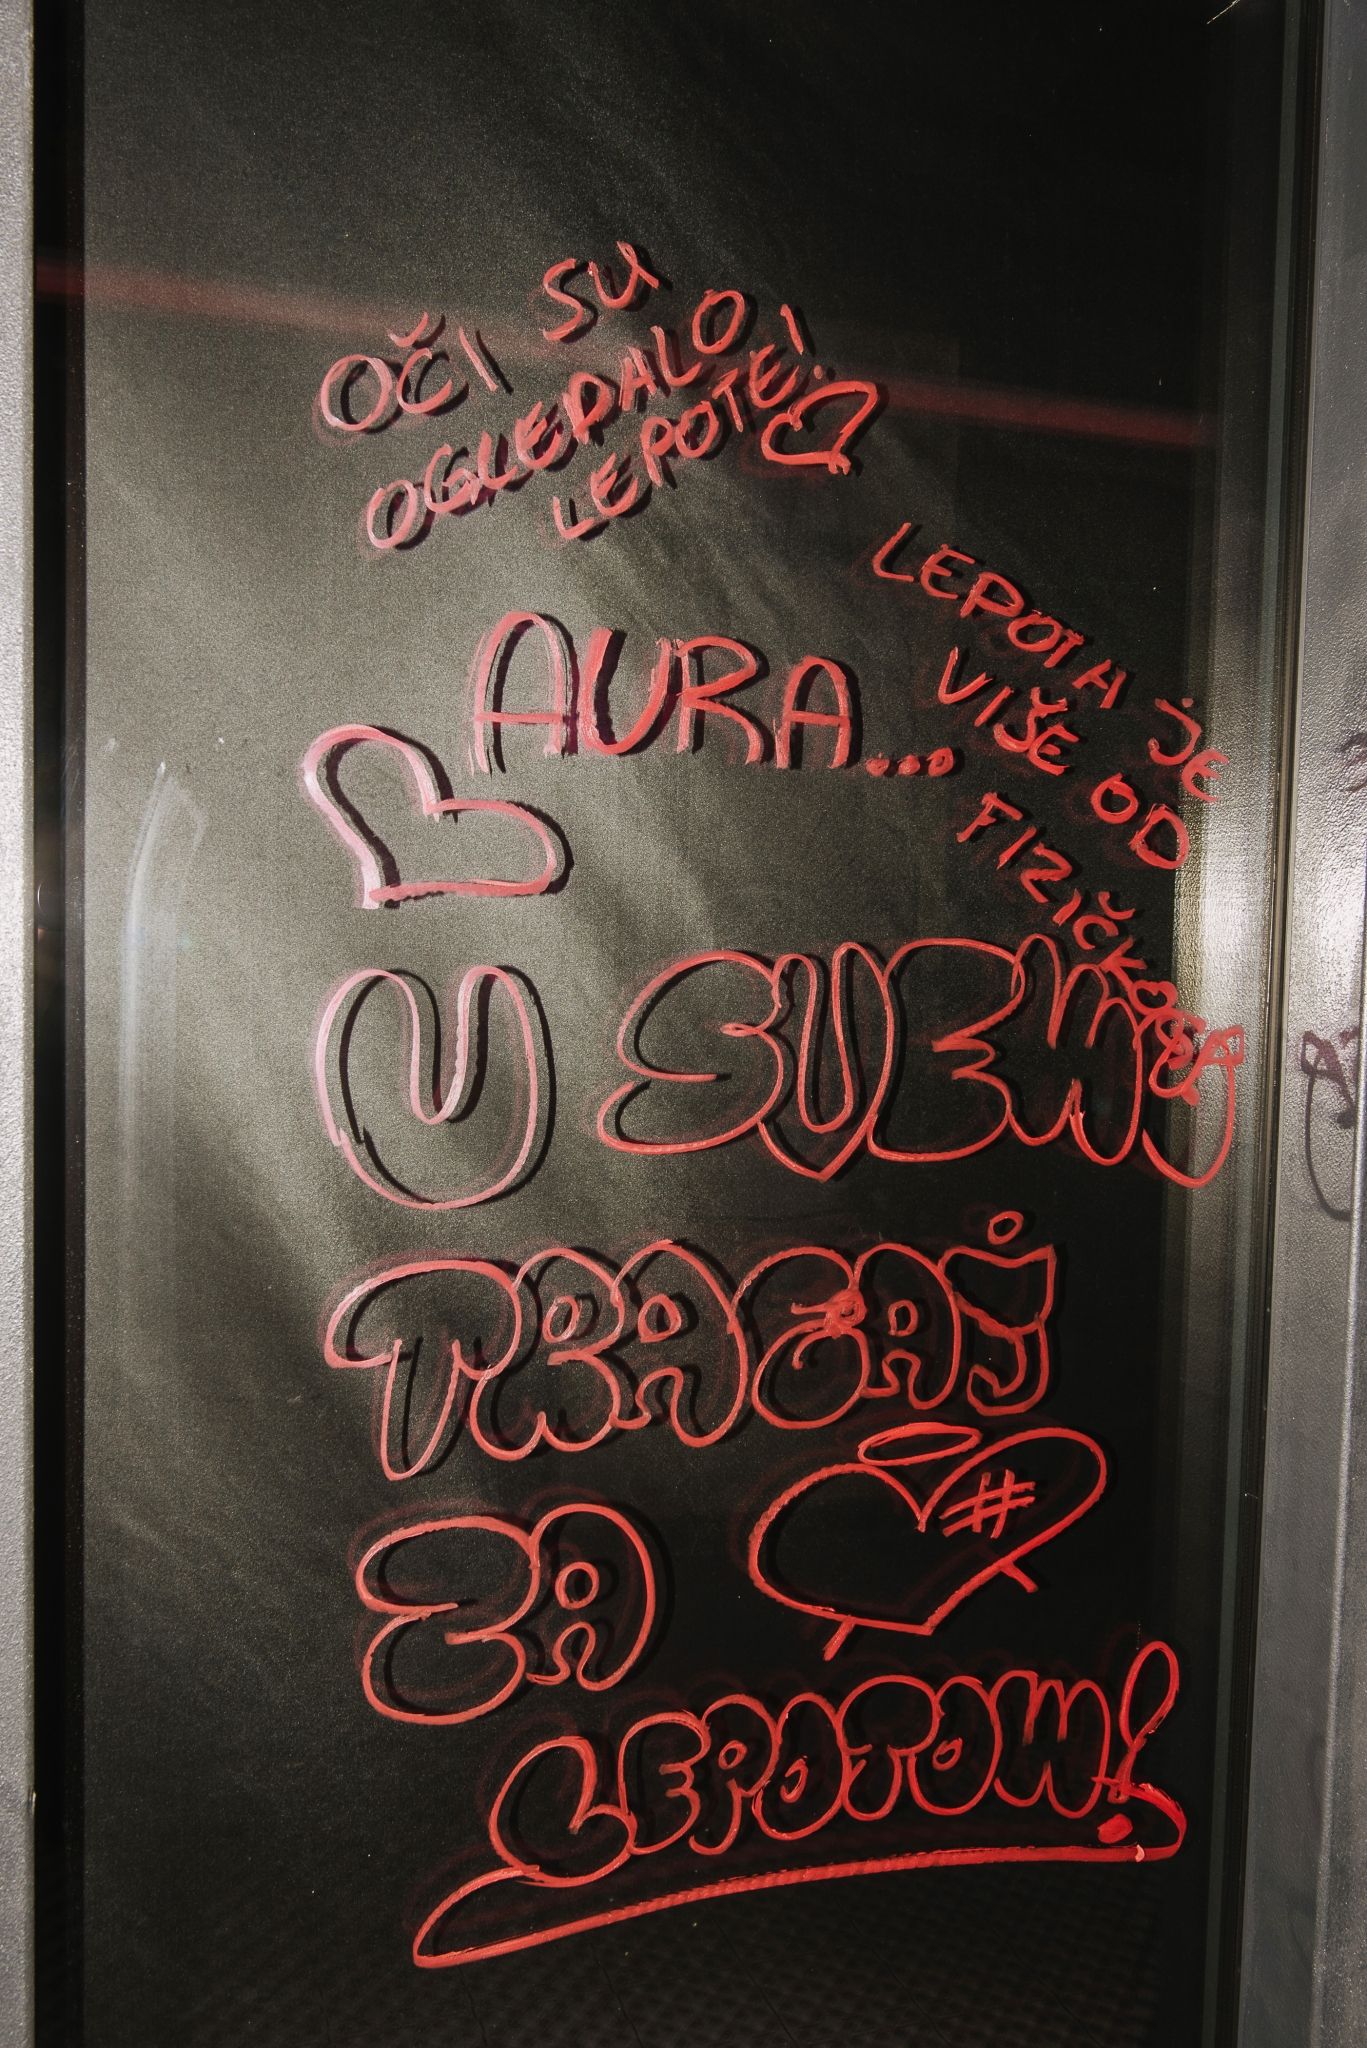 OČI SU
OGLEDALO
LEPOTE!
LEPOTA JE
VIŠE OD
FIZIČKOGA
AURA...
U SVEMU
TRAGAJ
ZA
#
LEPOTOM!